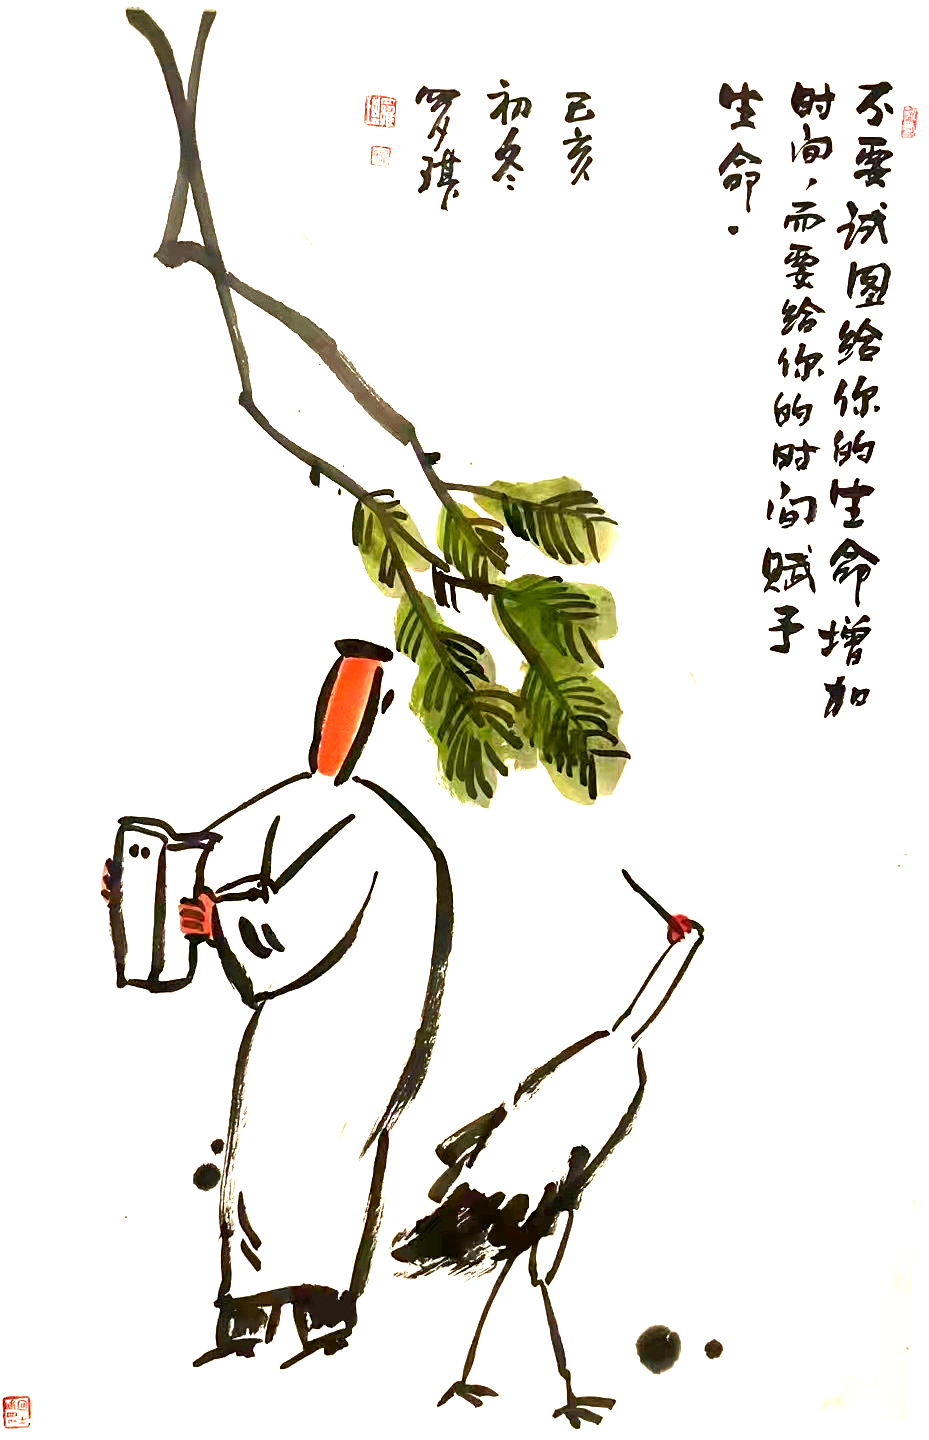 不要试图给你的生命增加
时间，而要给你的时间赋予
生命.
己亥
初冬
罗琪